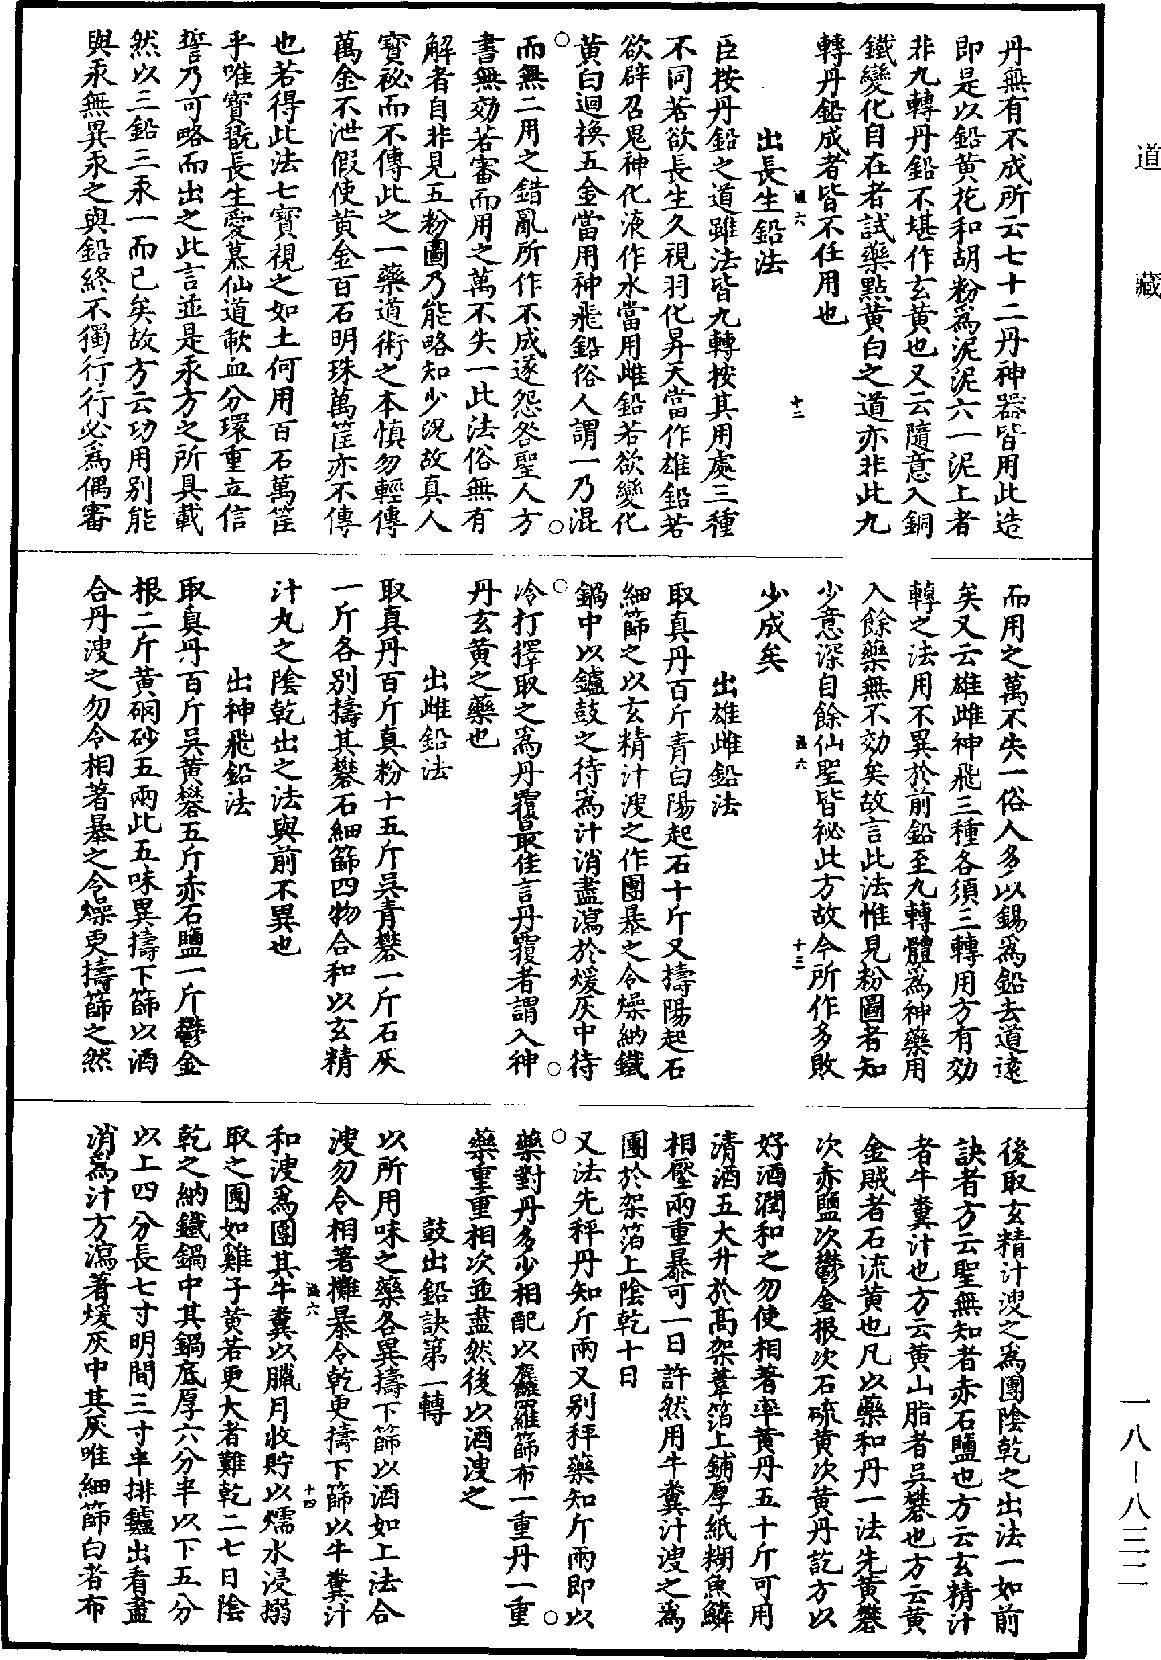 道藏
一八—八三二
丹無有不成所云七十二丹神器皆用此造
即是以鉛黄花和胡粉為泥泥六一泥上者
非九轉丹鉛不堪作玄黄也又云隨意入銅
鐵變化自在者試藥點黄白之道亦非此九
轉丹鉛成者皆不任用也
出長生鉛法
臣按丹鉛之道雖法皆九轉按其用處三種
不同若欲長生久視羽化昇天當作雄鉛若
欲辟召鬼神化液作水當用雌鉛若欲變化
黄白迴換五金當用神飛鉛俗人謂一乃混
而無二用之錯亂所作不成遂怨咎聖人方
書無効若審而用之萬不失一此法俗無有
解者自非見五粉圖乃能略知少況故真人
寳祕而不傳此之一藥道術之本慎勿輕傳
萬金不泄假使黄金百石明珠萬筐亦不傳
也若得此法七寳視之如土何用百石萬筐
乎唯寳翫長生愛慕仙道歃血分環重立信
誓乃可略而出之此言並是汞方之所具載
然以三鉛三汞一而已矣故方云功用别能
與汞無異汞之與鉛終不獨行行必為偶審
十二
而用之萬不失一俗人多以錫為鉛去道遠
矣又云雄雌神飛三種各須三轉用方有効
轉之法用不異於前鉛至九轉體為神藥用
入餘藥無不効矣故言此法惟見粉圖者知
少意深自餘仙聖皆祕此方故令所作多敗
少成矣
出雄雌鉛法
取真丹百斤青白陽起石十斤又擣陽起石
細篩之以玄精汁溲之作團暴之令燥納鐵
鍋中以鑪鼓之待為汁消盡瀉於煖灰中待
冷打擇取之為丹覆最佳言丹覆者謂入神
丹玄黄之藥也
出雌鉛法
取真丹百斤真粉十五斤吳青礬一斤石灰
一斤各别擣其礬石細篩四物合和以玄精
汁丸之陰乾出之法與前不異也
出神飛鉛法
取真丹百斤吳黄礬五斤赤石鹽一斤鬱金
根二斤黄硇砂五兩此五味異擣下篩以酒
合丹溲之勿令相著暴之令燥更擣篩之然
十三
後取玄精汁溲之為團陰乾之出法一如前
訣者方云聖無知者赤石鹽也方云玄精汁
者牛糞汁也方云黄山脂者吳礬也方云黄
金賊者石流黄也凡以藥和丹一法先黄礬
次赤鹽次鬱金根次石硫黄次黄丹訖方以
好酒潤和之勿使相著率黄丹五十斤可用
清酒五大升於高架葦箔上鋪厚紙糊魚鱗
相壓兩重暴可一日許然用牛糞汁溲之為
團於架箔上陰乾十日
又法先秤丹知斤兩又别秤藥知斤兩即以
藥對丹多少相配以麤羅篩布一重丹一重
藥重重相次並盡然後以酒溲之
鼓出鉛訣第一轉
以所用味之藥各異擣下篩以酒如上法合
溲勿令相著攤暴令乾更擣下篩以牛糞汁
和溲為團其牛糞以臘月收貯以煗水浸搦
取之團如雞子黄若更大者難乾二七日陰
乾之納鐵鍋中其鍋底厚六分半以下五分
以上四分長七寸明間三寸半排鑪出看盡
消為汁方瀉著煖灰中其灰唯細篩白者布
十四